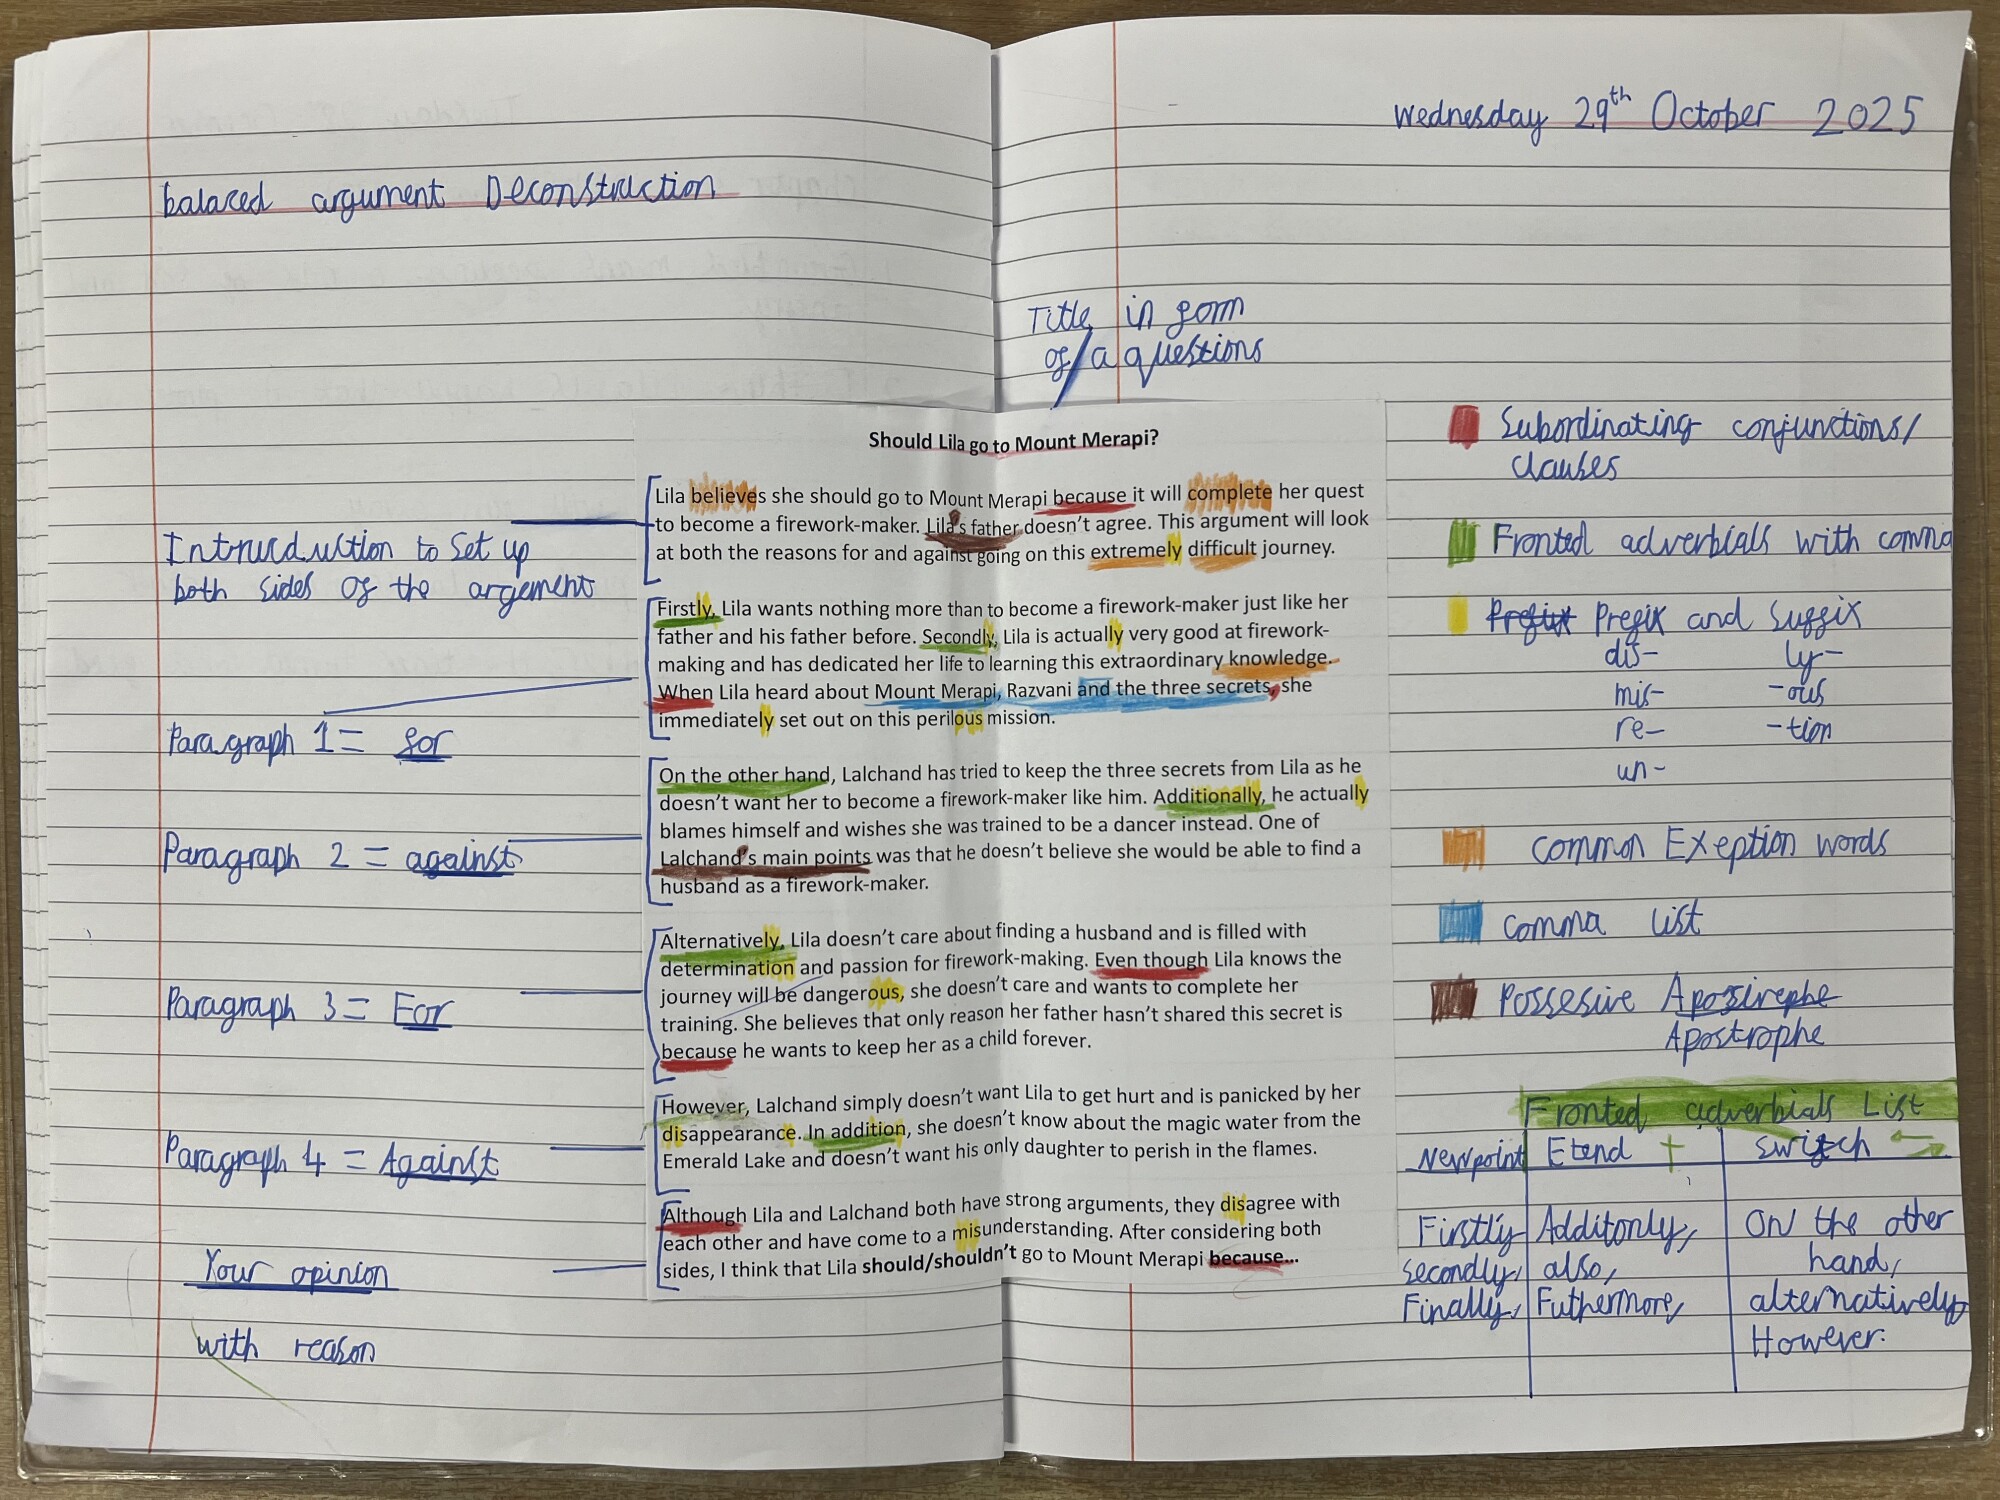 Wednesday 29th October 2025
balaced argument Deconstruction
Title in form
of a questions
Should Lila go to Mount Merapi?
Lila believes she should go to Mount Merapi because it will complete her quest
to become a firework-maker. Lila's father doesn't agree. This argument will look
at both the reasons for and against going on this extremely difficult journey.
Firstly, Lila wants nothing more than to become a firework-maker just like her
father and his father before. Secondly, Lila is actually very good at firework-
making and has dedicated her life to learning this extraordinary knowledge.
When Lila heard about Mount Merapi, Razvani and the three secrets, she
immediately set out on this perilous mission.
On the other hand, Lalchand has tried to keep the three secrets from Lila as he
doesn't want her to become a firework-maker like him. Additionally, he actually
blames himself and wishes she was trained to be a dancer instead. One of
Lalchand's main points was that he doesn't believe she would be able to find a
husband as a firework-maker.
Alternatively, Lila doesn't care about finding a husband and is filled with
determination and passion for firework-making. Even though Lila knows the
journey will be dangerous, she doesn't care and wants to complete her
training. She believes that only reason her father hasn't shared this secret is
because he wants to keep her as a child forever.
However, Lalchand simply doesn't want Lila to get hurt and is panicked by her
disappearance. In addition, she doesn't know about the magic water from the
Emerald Lake and doesn't want his only daughter to perish in the flames.
Although Lila and Lalchand both have strong arguments, they disagree with
each other and have come to a misunderstanding. After considering both
sides, I think that Lila should/shouldn't go to Mount Merapi because...
Intruduiction to set up
both sides of the argement
Paragraph 1 = for
Paragraph 2 = against
Paragraph 3 = For
Paragraph 4 = Against
Your opinion
with reason
Subordinating conjunctions/
clauses
Fronted adverbials with comma
Prefix and Suffix
dis- ly-
mis- -ous
re- -tion
un-
common Exeption words
comma list
Possesive Apostrephe
Apostrophe
Fronted adverbials List
Newpoint Etend + switch
Firstly Additonly, On the other
secondly, also, hand,
Finally, Futhermore, alternatively,
However.